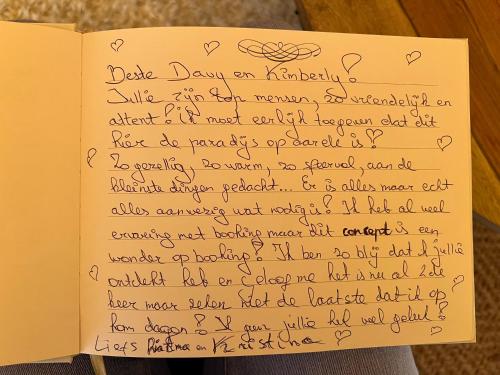 Beste Davy en Kimberly!
Jullie zijn top mensen, zo vriendelijk en
attent! ik moet eerlijk toegeven dat dit
hier de paradijs op aarde is!
Zo gezellig, zo warm, zo sfeervol, aan de
kleinste dingen gedacht... Er is alles maar echt
alles aanwezig wat nodig is! Ik heb al veel
ervaring met booking maar dit concept is een
wonder op booking! Ik ben zo blij dat ik jullie
ontdekt heb en geloof me het is nu al 2de
keer maar zeker niet de laatste dat ik op
kom dagen! Ik gun jullie hel veel geluk!
Liefs en Kristine